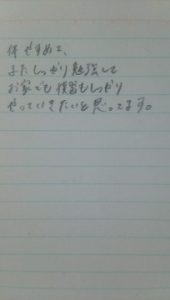 体やすめて、
またしっかり勉強して
お家でも復習もしっかり
やっていきたいと思ってます。